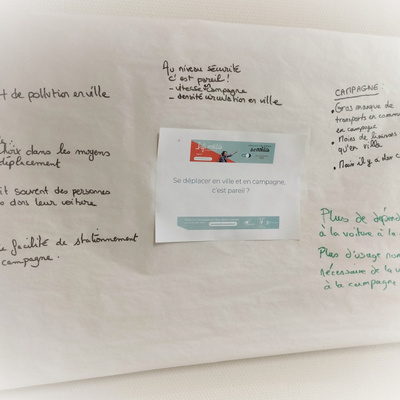 t de pollution en ville
hoix dans les moyens
déplacement
it souvent des personnes
dans leur voiture
facilité de stationnement
campagne.
Au niveau sécurité
c'est pareil !
- vitesse campagne
- densité circulation en ville
Se déplacer en ville et en campagne,
c'est pareil ?
CAMPAGNE
• Gros manque de
transports en commun
en campagne
• Moins de liaisons
qu'en ville
• Mais il y a des c
Plus de dépend
à la voiture à la
Plus d'usage
nécessaire de la v
à la campagne